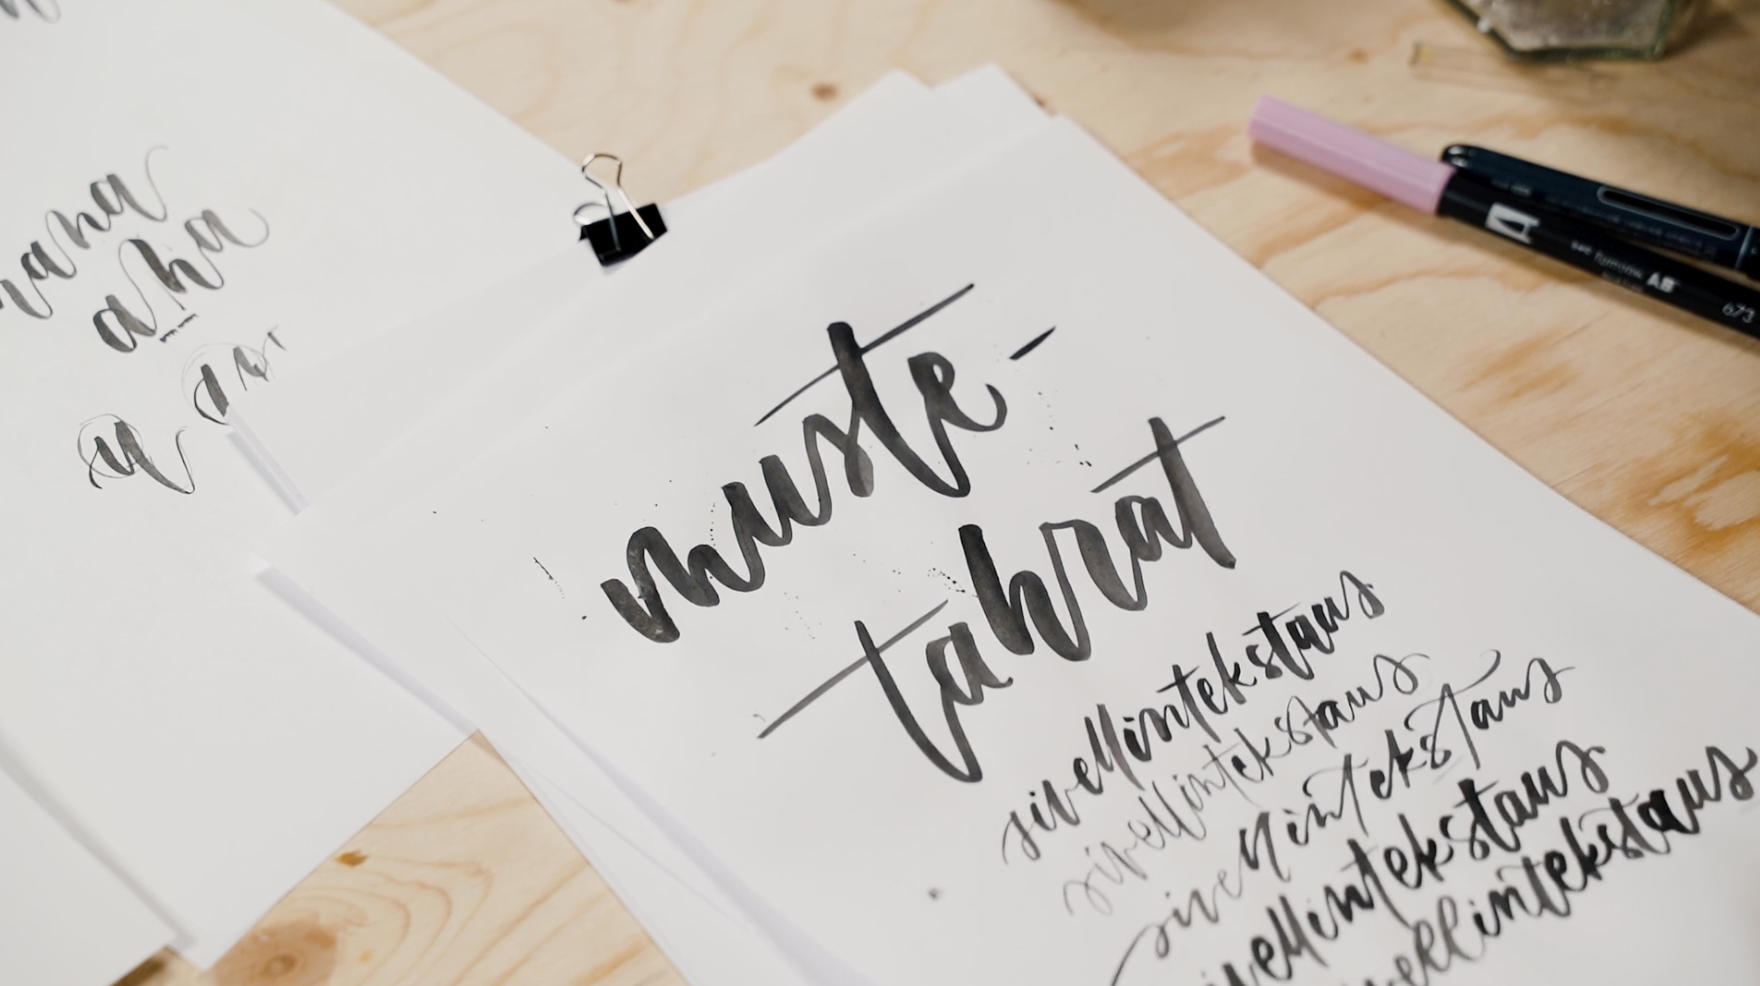 aha
muste-
tahrat
sivellintekstaus
sivellintekstaus
sivellintekstaus
sivellintekstaus
sivellintekstaus
AB
673